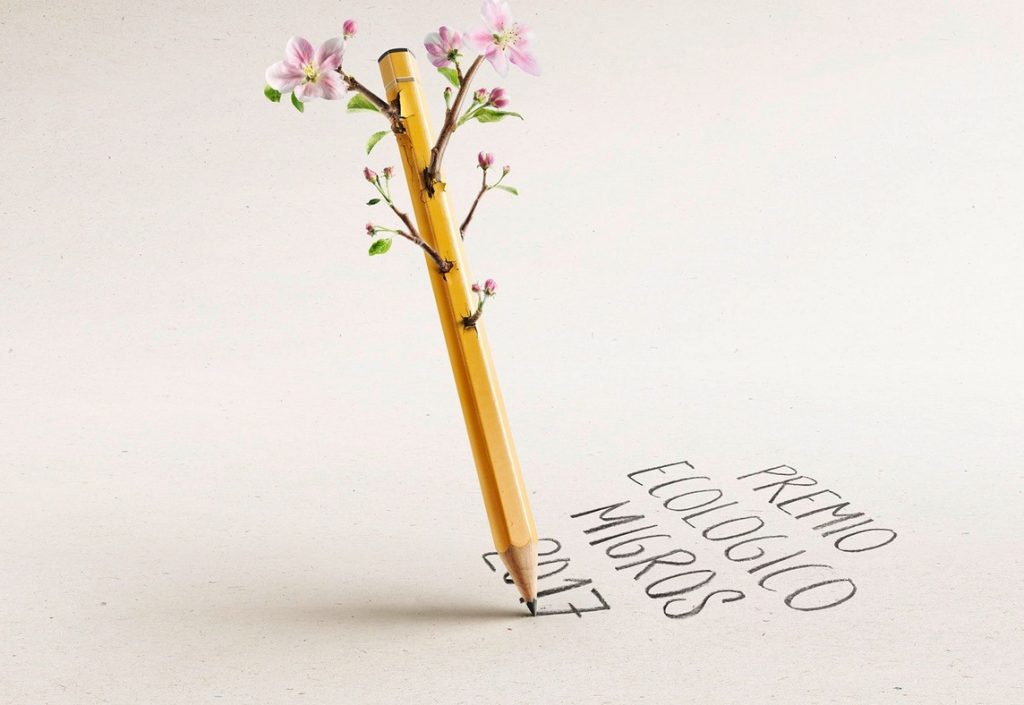 PREMIO
ECOLOGICO
MIGROS
2017